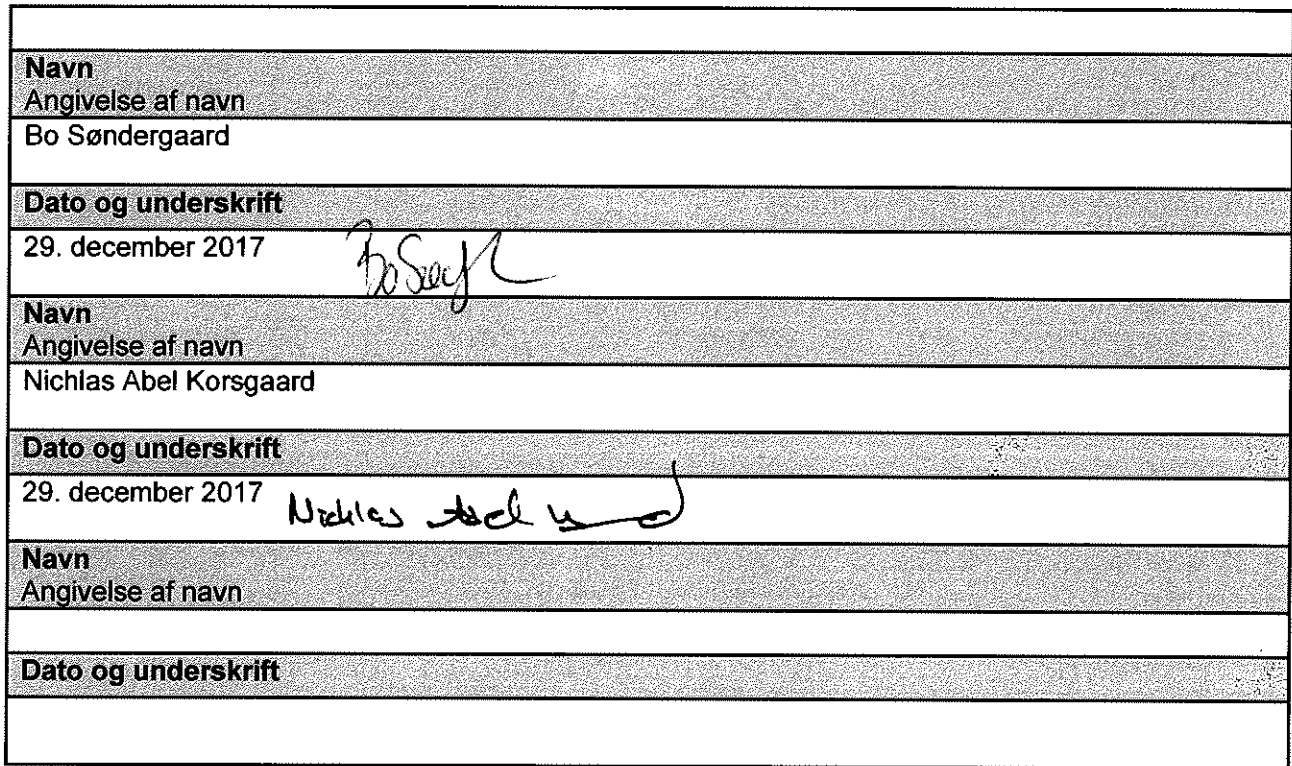 Navn
Angivelse af navn
Bo Søndergaard
Dato og underskrift
29. december 2017
Navn
Angivelse af navn
Nichlas Abel Korsgaard
Dato og underskrift
29. december 2017 Nichlas Abel
Navn
Angivelse af navn
Dato og underskrift